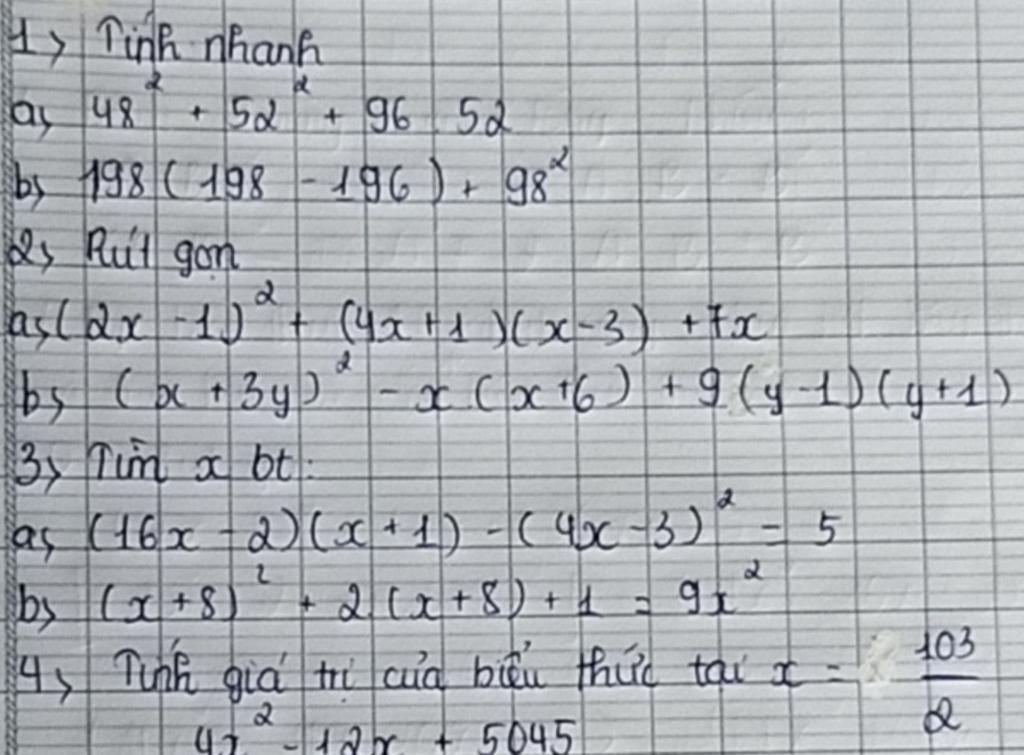 1, Tính nhanh
a, 48² + 52² + 96 . 52
b, 198 (198 - 196) + 98²
2, Rút gọn
a, (2x - 1)² + (4x + 1)(x - 3) + 7x
b, (x + 3y)² - x (x + 6) + 9 (y - 1)(y + 1)
3, Tìm x bt:
a, (16x - 2)(x + 1) - (4x - 3)² = 5
b, (x + 8)² + 2 (x + 8) + 1 = 9x²
4, Tính giá trị của biểu thức tại x = 103/2
4x² - 12x + 5045